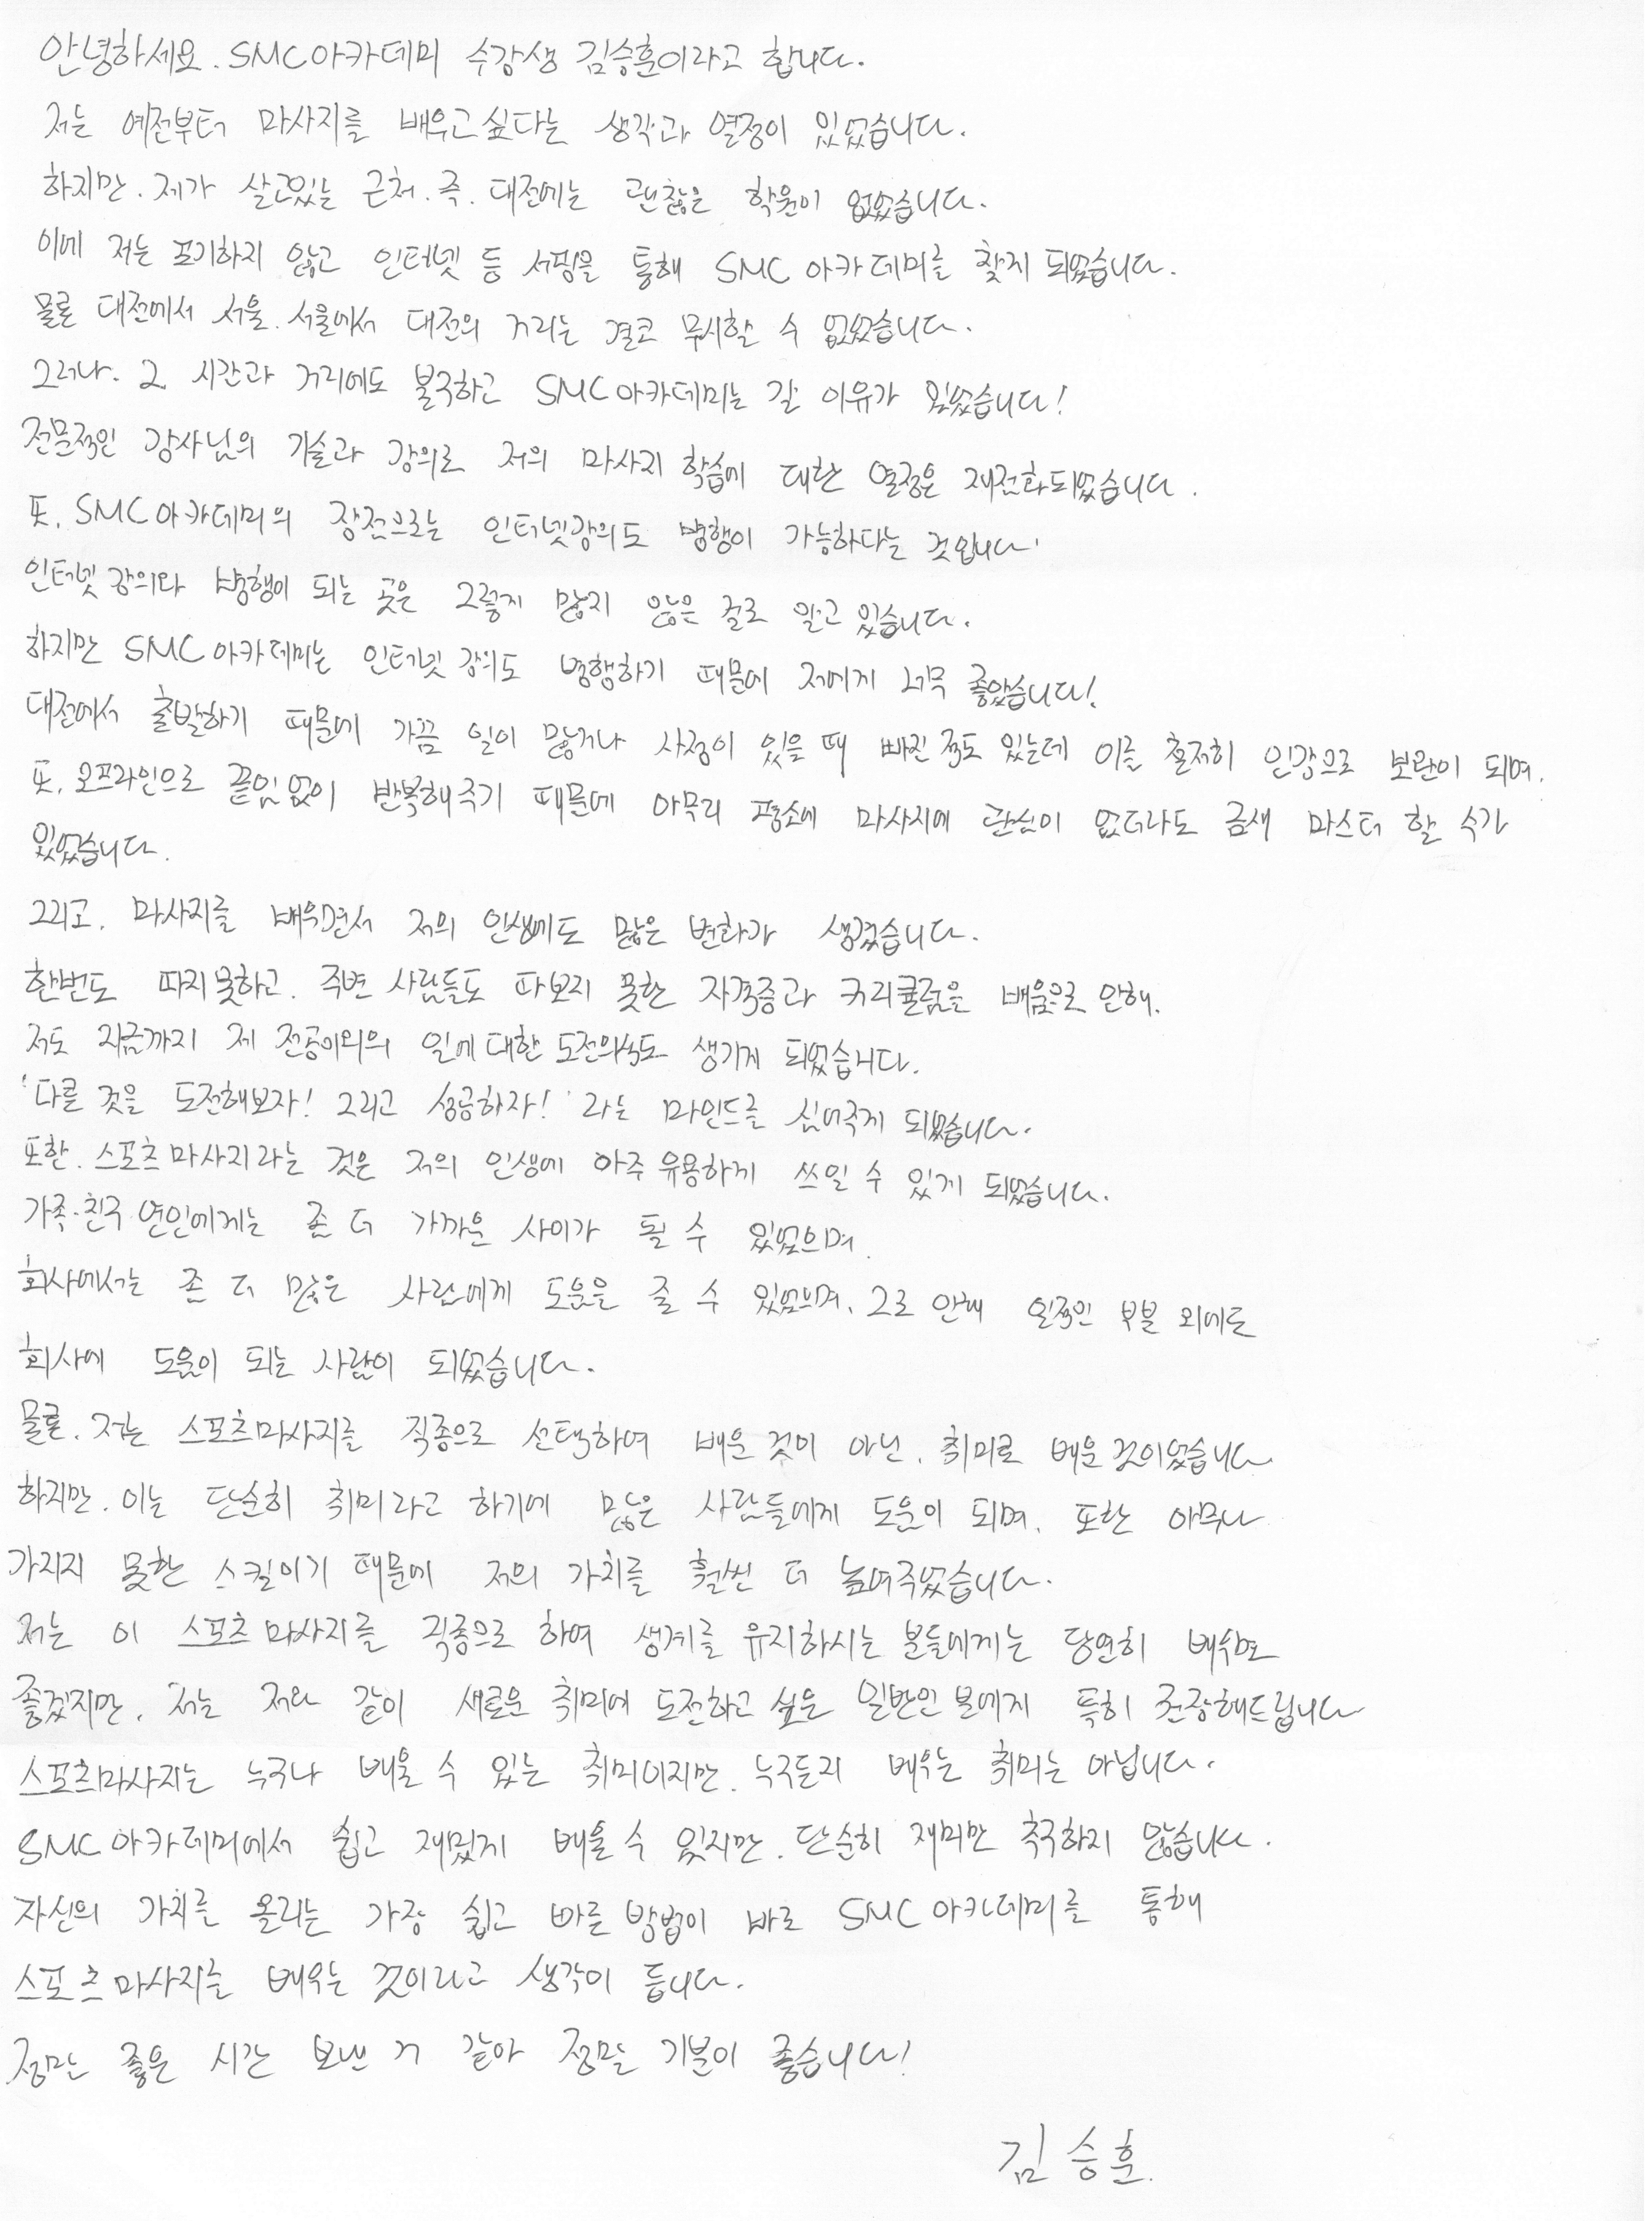 안녕하세요. SMC아카데미 수강생 김승훈이라고 합니다.
저는 예전부터 마사지를 배우고싶다는 생각과 열정이 있었습니다.
하지만. 제가 살고있는 근처. 즉. 대전에는 괜찮은 학원이 없었습니다.
이에 저는 포기하지 않고 인터넷 등 서핑을 통해 SMC 아카데미를 찾게 되었습니다.
물론 대전에서 서울. 서울에서 대전의 거리는 결코 무시할 수 없었습니다.
그러나. 그 시간과 거리에도 불구하고 SMC아카데미는 갈 이유가 있었습니다!
전문적인 강사님의 기술과 강의로 저의 마사지 학습에 대한 열정은 재점화되었습니다.
또. SMC아카데미의 장점으로는 인터넷강의도 병행이 가능하다는 것입니다.
인터넷 강의와 병행이 되는 곳은 그렇게 많지 않은 걸로 알고 있습니다.
하지만 SMC아카데미는 인터넷 강의도 병행하기 때문에 저에게 너무 좋았습니다!
대전에서 출발하기 때문에 가끔 일이 많거나 사정이 있을 때 빠진 적도 있는데 이를 철저히 인강으로 보완이 되며.
또. 오프라인으로 끝임없이 반복해주기 때문에 아무리 평소에 마사지에 관심이 없더라도 금새 마스터 할 수가
있었습니다.
그리고. 마사지를 배우면서 저의 인생에도 많은 변화가 생겼습니다.
한번도 따지못하고. 주변 사람들도 따보지 못한 자격증과 커리큘럼을 배움으로 인해.
저도 지금까지 제 전공이외의 일에 대한 도전의식도 생기게 되었습니다.
'다른 것을 도전해보자! 그리고 성공하자!' 라는 마인드를 심어주게 되었습니다.
또한. 스포츠마사지라는 것은 저의 인생에 아주 유용하게 쓰일 수 있게 되었습니다.
가족·친구 연인에게는 좀 더 가까운 사이가 될 수 있었으며.
회사에서는 좀 더 많은 사람에게 도움을 줄 수 있었으며. 그로 인해 일적인 부분 외에도
회사에 도움이 되는 사람이 되었습니다.
물론. 저는 스포츠마사지를 직종으로 선택하여 배운 것이 아닌. 취미로 배운 것이었습니다
하지만. 이는 단순히 취미라고 하기에 많은 사람들에게 도움이 되며. 또한 아무나
가지지 못한 스킬이기 때문에 저의 가치를 훨씬 더 높여주었습니다.
저는 이 스포츠마사지를 직종으로 하여 생계를 유지하시는 분들에게는 당연히 배우면
좋겠지만. 저는 저와 같이 새로운 취미에 도전하고 싶은 일반인 분에게 특히 권장해드립니다
스포츠마사지는 누구나 배울 수 있는 취미이지만. 누구든지 배우는 취미는 아닙니다.
SMC아카데미에서 쉽고 재밌게 배울 수 있지만. 단순히 재미만 추구하지 않습니다.
자신의 가치를 올리는 가장 쉽고 빠른 방법이 바로 SMC아카데미를 통해
스포츠마사지를 배우는 것이라고 생각이 듭니다.
정말 좋은 시간 보낸 거 같아 정말 기분이 좋습니다!
김승훈.